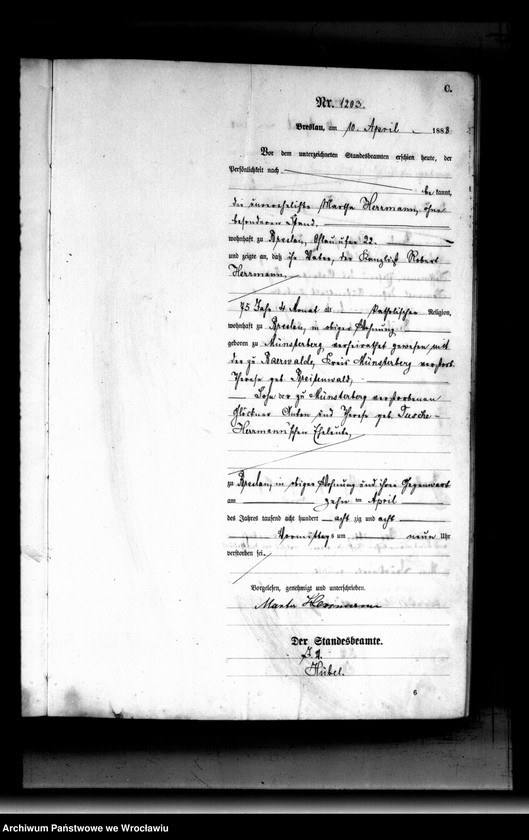 C.
Nr. 1203.
Breslau, am 10. April 1888
Vor dem unterzeichneten Standesbeamten erschien heute, der
Persönlichkeit nach
be kannt,
die unverehelichte Martha Herrmann, ohne
besonderen Stand,
wohnhaft zu Breslau, Ohlau ufer 22.
und zeigte an, daß ihr Vater, der Kanzlist Robert
Herrmann,
75 Jahr 4 Monat alt, katholischer Religion,
wohnhaft zu Breslau, in obiger Wohnung,
geboren zu Münsterberg, verheirathet gewesen mit
der zu Baerwalde, Kreis Münsterberg verstorb.
Therese geb. Breitenwald,
Sohn der zu Münsterberg verstorbenen
Glöckner Anton und Therese geb.
Herrmann'schen Eheleute,
zu Breslau, in obiger Wohnung und ihrer Gegenwart
am zehn ten April
des Jahres tausend acht hundert acht zig und acht
Vormittags um neun Uhr
verstorben sei.
Vorgelesen, genehmigt und unterschrieben.
Martha Herrmann
Der Standesbeamte.
Hübel.
6
Archiwum Państwowe we Wrocławiu